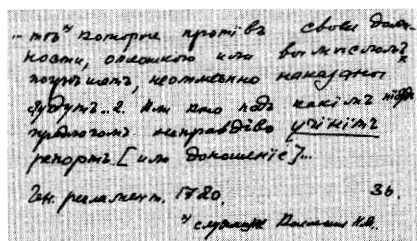 ... тѣ *) которые противъ своей долж-
ности, оплошкою или вымысломъ
погрѣшатъ, неотмѣнно наказаны
будутъ..2. Или кто подъ какимъ
предлогомъ неправдіво учінітъ
репортъ [или доношеніе]...
Ген. регламент. 1720. 36.
*) служащіе